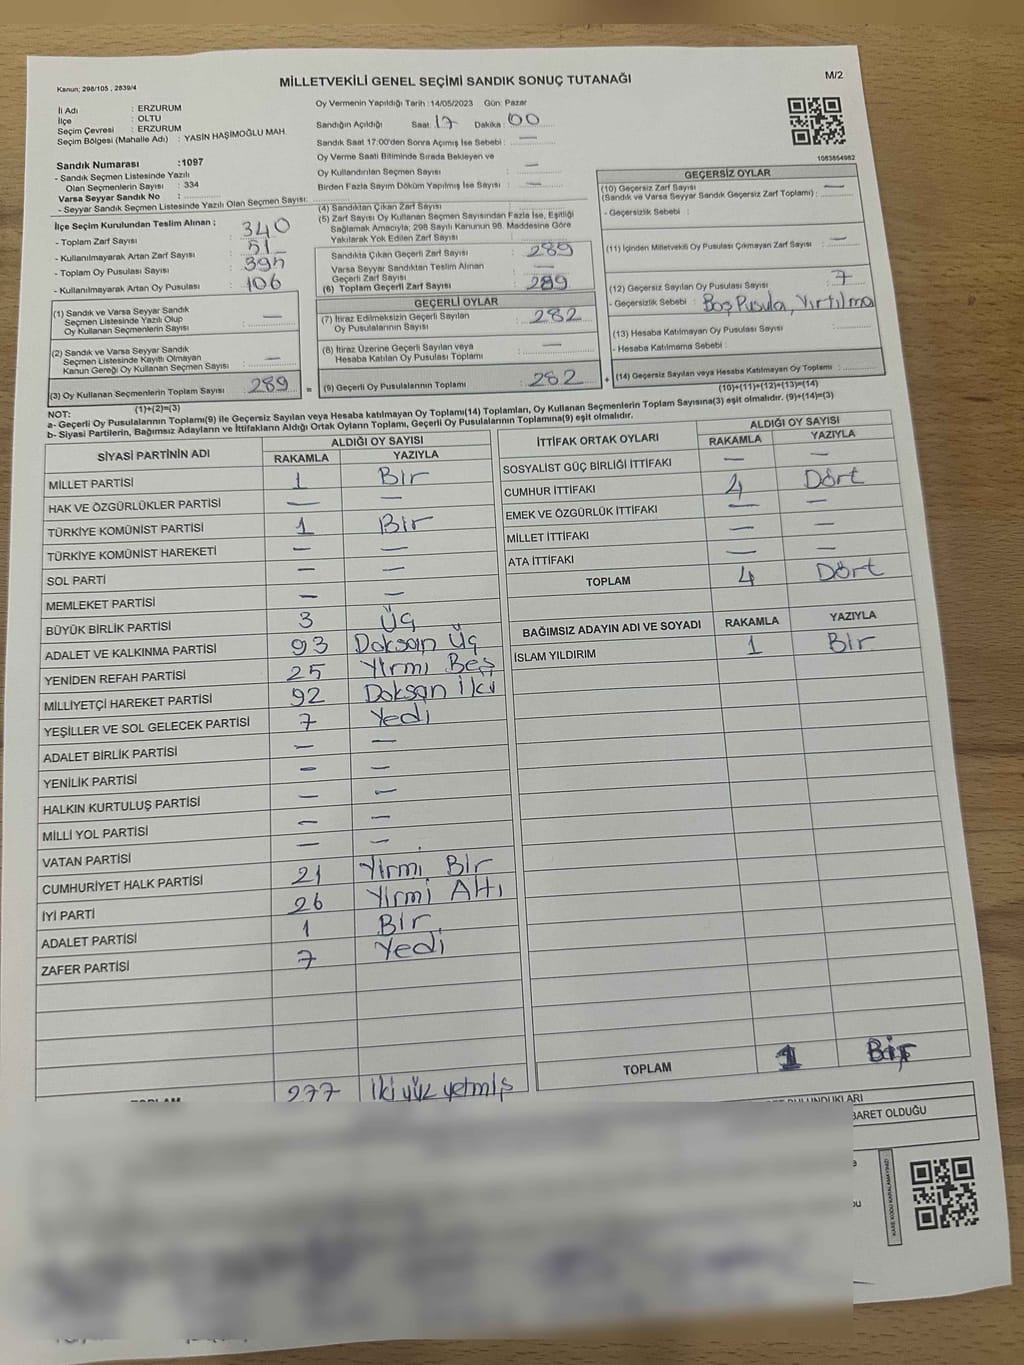 Kanun; 298/105 , 2839/4
MİLLETVEKİLİ GENEL SEÇİMİ SANDIK SONUÇ TUTANAĞI
M/2
İl Adı : ERZURUM
İlçe : OLTU
Seçim Çevresi : ERZURUM
Seçim Bölgesi (Mahalle Adı) : YASİN HAŞİMOĞLU MAH.
Sandık Numarası :1097
- Sandık Seçmen Listesinde Yazılı
Olan Seçmenlerin Sayısı : 334
Varsa Seyyar Sandık No :
- Seyyar Sandık Listesinde Yazılı Olan Seçmen Sayısı:
Oy Vermenin Yapıldığı Tarih :14/05/2023 Gün: Pazar
Sandığın Açıldığı Saat: 17 Dakika: 00
Sandık Saat 17:00'den Sonra Açımış İse Sebebi : —
Oy Verme Saati Bitiminde Sırada Bekleyen ve
Oy Kullandırılan Seçmen Sayısı : —
Birden Fazla Sayım Döküm Yapılmış İse Sayısı : —
1083854982
İlçe Seçim Kurulundan Teslim Alınan ;
- Toplam Zarf Sayısı : 340
- Kullanılmayarak Artan Zarf Sayısı : 51
- Toplam Oy Pusulası Sayısı : 395
- Kullanılmayarak Artan Oy Pusulası : 106
(1) Sandık ve Varsa Seyyar Sandık
Seçmen Listesinde Yazılı Olup
Oy Kullanan Seçmenlerin Sayısı : —
(2) Sandık ve Varsa Seyyar Sandık
Seçmen Listesinde Kayıtlı Olmayan
Kanun Gereği Oy Kullanan Seçmen Sayısı : —
(3) Oy Kullanan Seçmenlerin Toplam Sayısı : 289 =
(1)+(2)=(3)
(4) Sandıktan Çıkan Zarf Sayısı :
(5) Zarf Sayısı Oy Kullanan Seçmen Sayısından Fazla İse, Eşitliği
Sağlamak Amacıyla; 298 Sayılı Kanunun 98. Maddesine Göre
Yakılarak Yok Edilen Zarf Sayısı :
Sandıkta Çıkan Geçerli Zarf Sayısı : 289
Varsa Seyyar Sandıktan Teslim Alınan
Geçerli Zarf Sayısı : —
(6) Toplam Geçerli Zarf Sayısı : 289
GEÇERLİ OYLAR
(7) İtiraz Edilmeksizin Geçerli Sayılan
Oy Pusulalarının Sayısı : 282
(8) İtiraz Üzerine Geçerli Sayılan veya
Hesaba Katılan Oy Pusulası Toplamı : —
(9) Geçerli Oy Pusulalarının Toplamı : 282 +
GEÇERSİZ OYLAR
(10) Geçersiz Zarf Sayısı
(Sandık ve Varsa Seyyar Sandık Geçersiz Zarf Toplamı) : —
- Geçersizlik Sebebi :
(11) İçinden Milletvekili Oy Pusulası Çıkmayan Zarf Sayısı : —
(12) Geçersiz Sayılan Oy Pusulası Sayısı : 7
- Geçersizlik Sebebi : Boş Pusula, Yırtılma
(13) Hesaba Katılmayan Oy Pusulası Sayısı :
- Hesaba Katılmama Sebebi :
(14) Geçersiz Sayılan veya Hesaba Katılmayan Oy Toplamı :
(10)+(11)+(12)+(13)=(14)
NOT:
a- Geçerli Oy Pusulalarının Toplamı(9) ile Geçersiz Sayılan veya Hesaba katılmayan Oy Toplamı(14) Toplamları, Oy Kullanan Seçmenlerin Toplam Sayısına(3) eşit olmalıdır. (9)+(14)=(3)
b- Siyasi Partilerin, Bağımsız Adayların ve İttifakların Aldığı Ortak Oyların Toplamı, Geçerli Oy Pusulalarının Toplamına(9) eşit olmalıdır.
SİYASİ PARTİNİN ADI
ALDIĞI OY SAYISI
RAKAMLA YAZIYLA
MİLLET PARTİSİ 1 Bir
HAK VE ÖZGÜRLÜKLER PARTİSİ — —
TÜRKİYE KOMÜNİST PARTİSİ 1 Bir
TÜRKİYE KOMÜNİST HAREKETİ — —
SOL PARTİ — —
MEMLEKET PARTİSİ — —
BÜYÜK BİRLİK PARTİSİ 3 Üç
ADALET VE KALKINMA PARTİSİ 93 Doksan Üç
YENİDEN REFAH PARTİSİ 25 Yirmi Beş
MİLLİYETÇİ HAREKET PARTİSİ 92 Doksan İki
YEŞİLLER VE SOL GELECEK PARTİSİ 7 Yedi
ADALET BİRLİK PARTİSİ — —
YENİLİK PARTİSİ — —
HALKIN KURTULUŞ PARTİSİ — —
MİLLİ YOL PARTİSİ — —
VATAN PARTİSİ — —
CUMHURİYET HALK PARTİSİ 21 Yirmi Bir
İYİ PARTİ 26 Yirmi Altı
ADALET PARTİSİ 1 Bir
ZAFER PARTİSİ 7 Yedi
277 iki yüz yetmiş
İTTİFAK ORTAK OYLARI
ALDIĞI OY SAYISI
RAKAMLA YAZIYLA
SOSYALİST GÜÇ BİRLİĞİ İTTİFAKI — —
CUMHUR İTTİFAKI 4 Dört
EMEK VE ÖZGÜRLÜK İTTİFAKI — —
MİLLET İTTİFAKI — —
ATA İTTİFAKI — —
TOPLAM 4 Dört
BAĞIMSIZ ADAYIN ADI VE SOYADI RAKAMLA YAZIYLA
İSLAM YILDIRIM 1 Bir
TOPLAM 1 Bir
BARET OLDUĞU